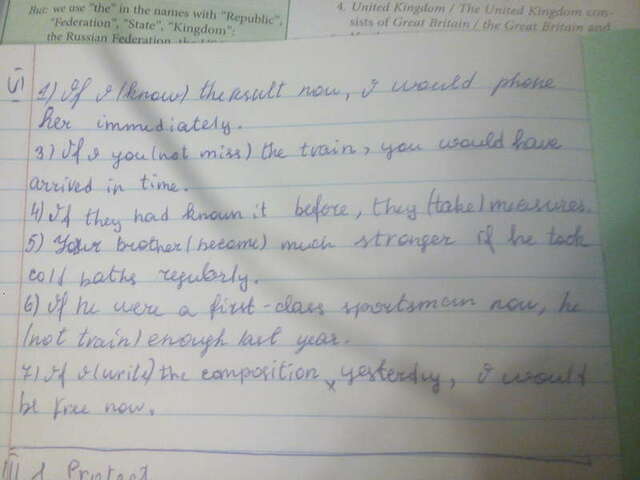 But: we use "the" in the names with "Republic",
"Federation", "State", "Kingdom":
the Russian Federation, the
4. United Kingdom / The United Kingdom con-
sists of Great Britain / the Great Britain and
VI 1) If I (know) the result now, I would phone
her immediately.
3) If you (not miss) the train, you would have
arrived in time.
4) If they had known it before, they (take) measures.
5) Your brother (become) much stronger if he took
cold baths regularly.
6) If he were a first-class sportsman now, he
(not train) enough last year.
7) If I (write) the composition yesterday, I would
be free now.